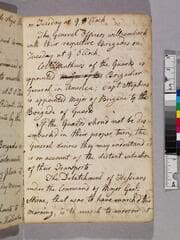 Tuesday at 9 o'Clock.
The General Officers will embark
with their respective Brigades on
Tuesday at 9 o'Clock.
Mathew of the Guards is
appointed Brigadier
General in America. Capt Stephens
is appointed Major of Brigade to the
Brigade of Guards
If the Guards should not be dis-
embark'd in their proper turn, the
General desires they may understand it
is on account of the distant situation
of their Transports
The Detachment of Hessians
under the Command of Major Genl
Stirn, that was to have marched this
morning, is to march to morrow at